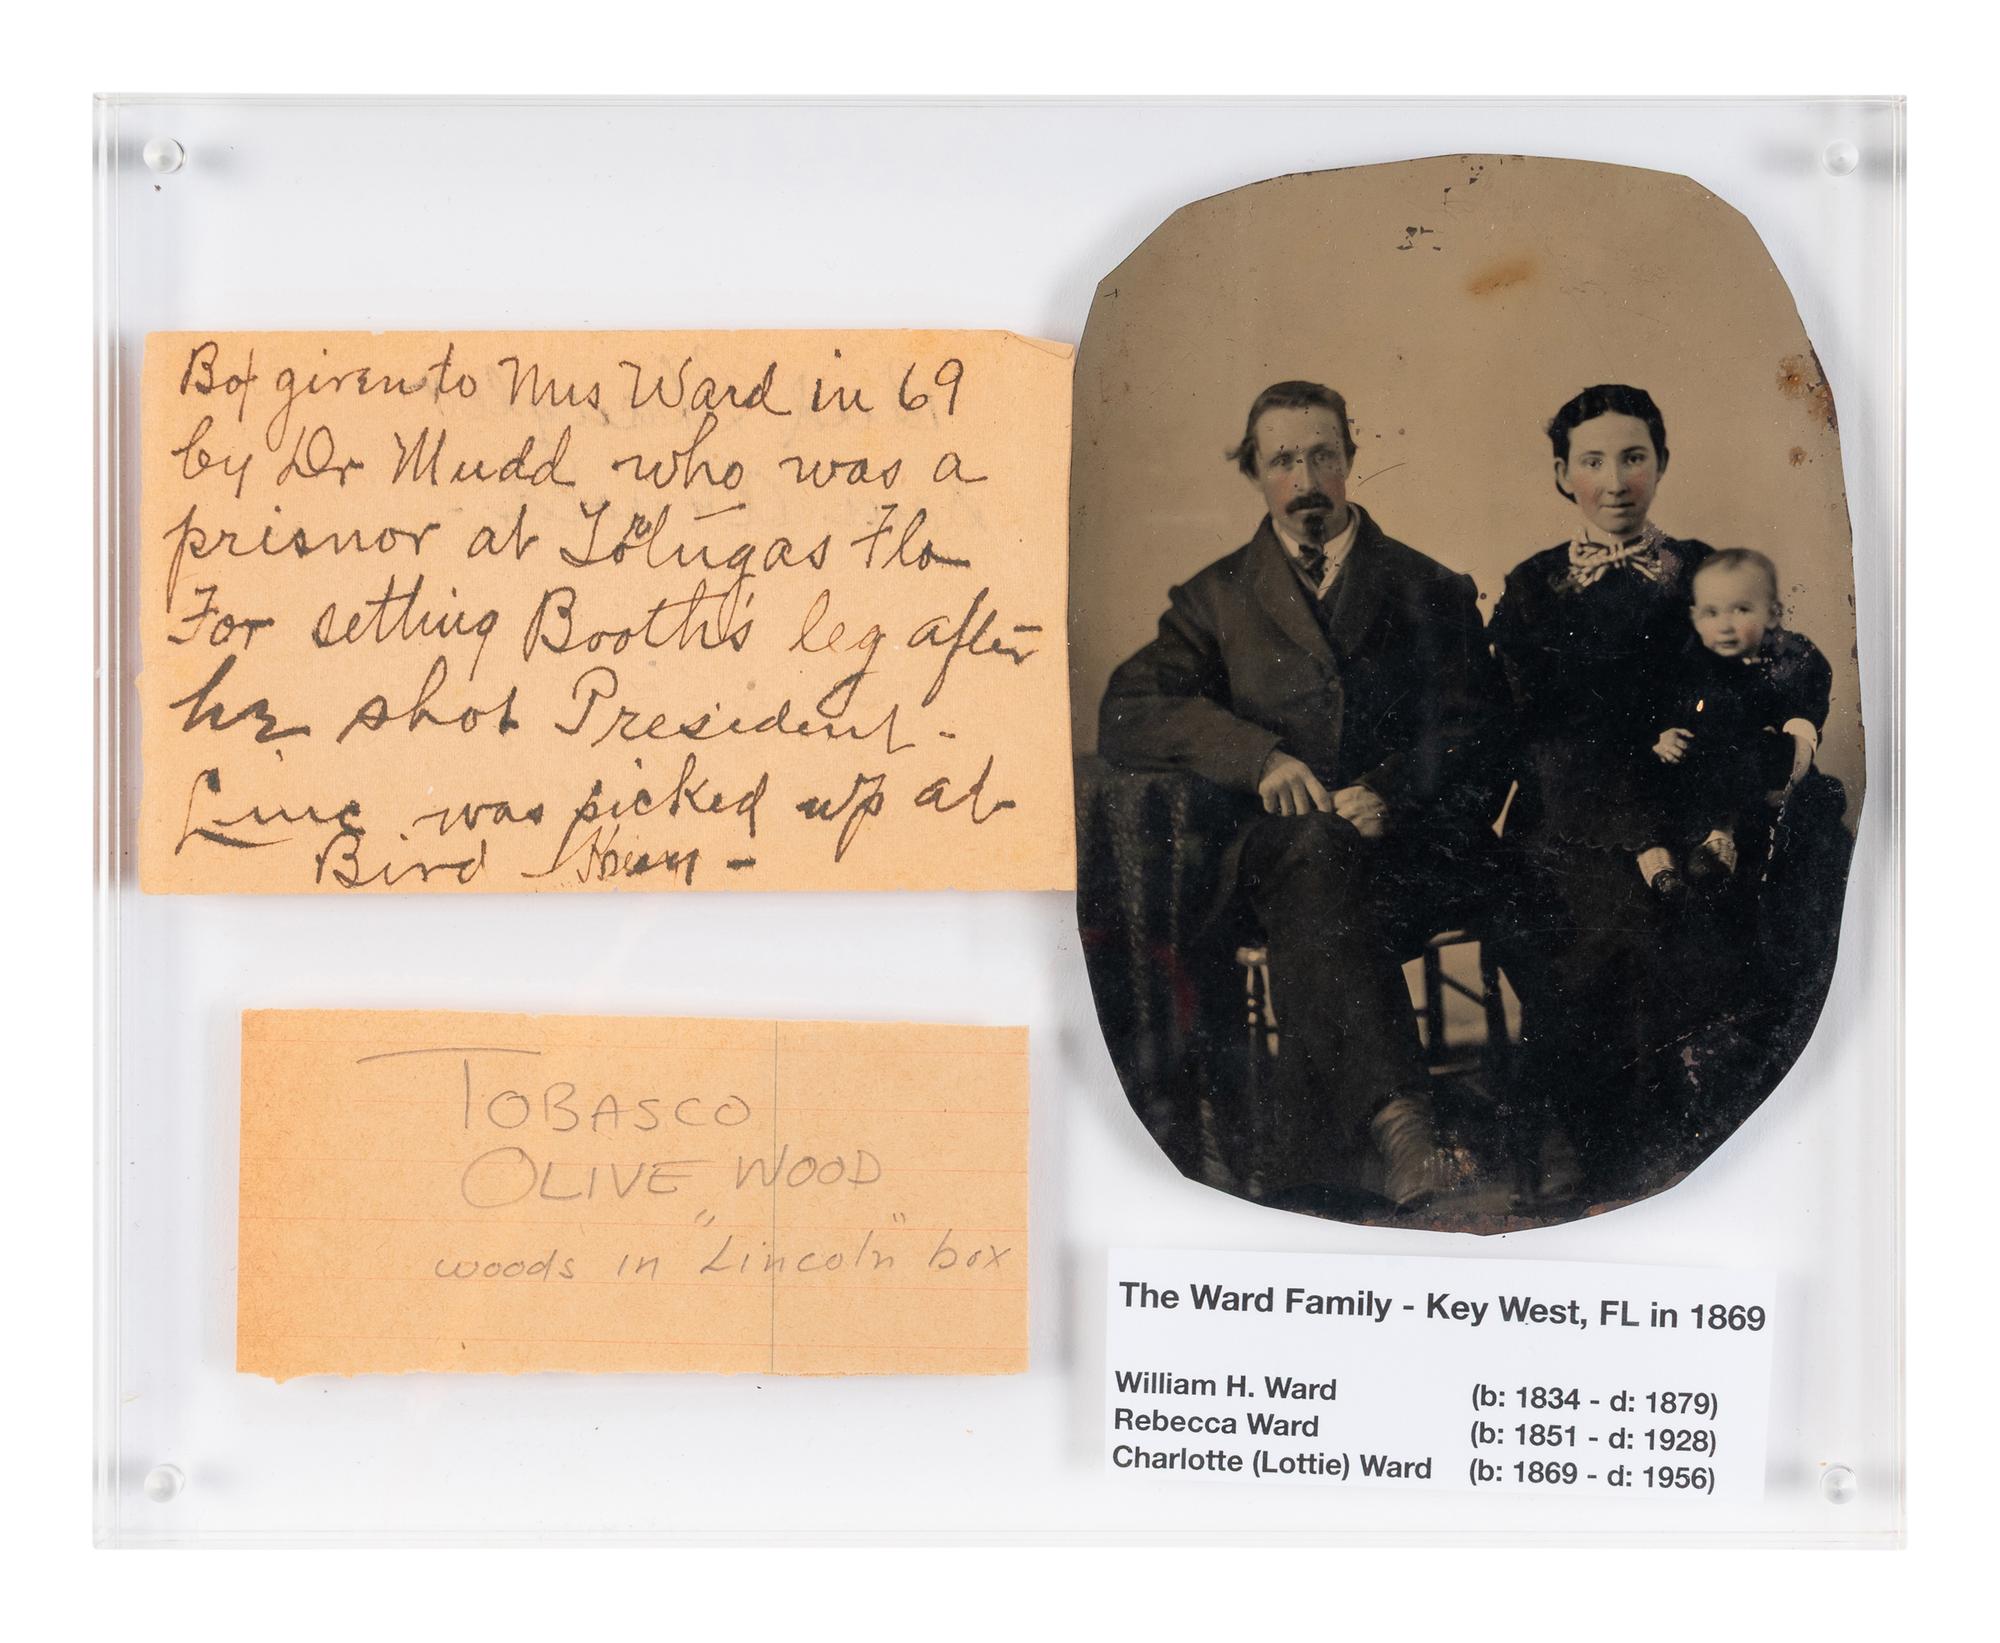 Box given to Mrs Ward in 69
by Dr Mudd who was a
prisnor at Totugas Flo
For setting Booth's leg after
he shot President -
Linc was picked up at
Bird Key -
TOBASCO
OLIVE WOOD
woods in "Lincoln" box
The Ward Family - Key West, FL in 1869
William H. Ward (b: 1834 - d: 1879)
Rebecca Ward (b: 1851 - d: 1928)
Charlotte (Lottie) Ward (b: 1869 - d: 1956)